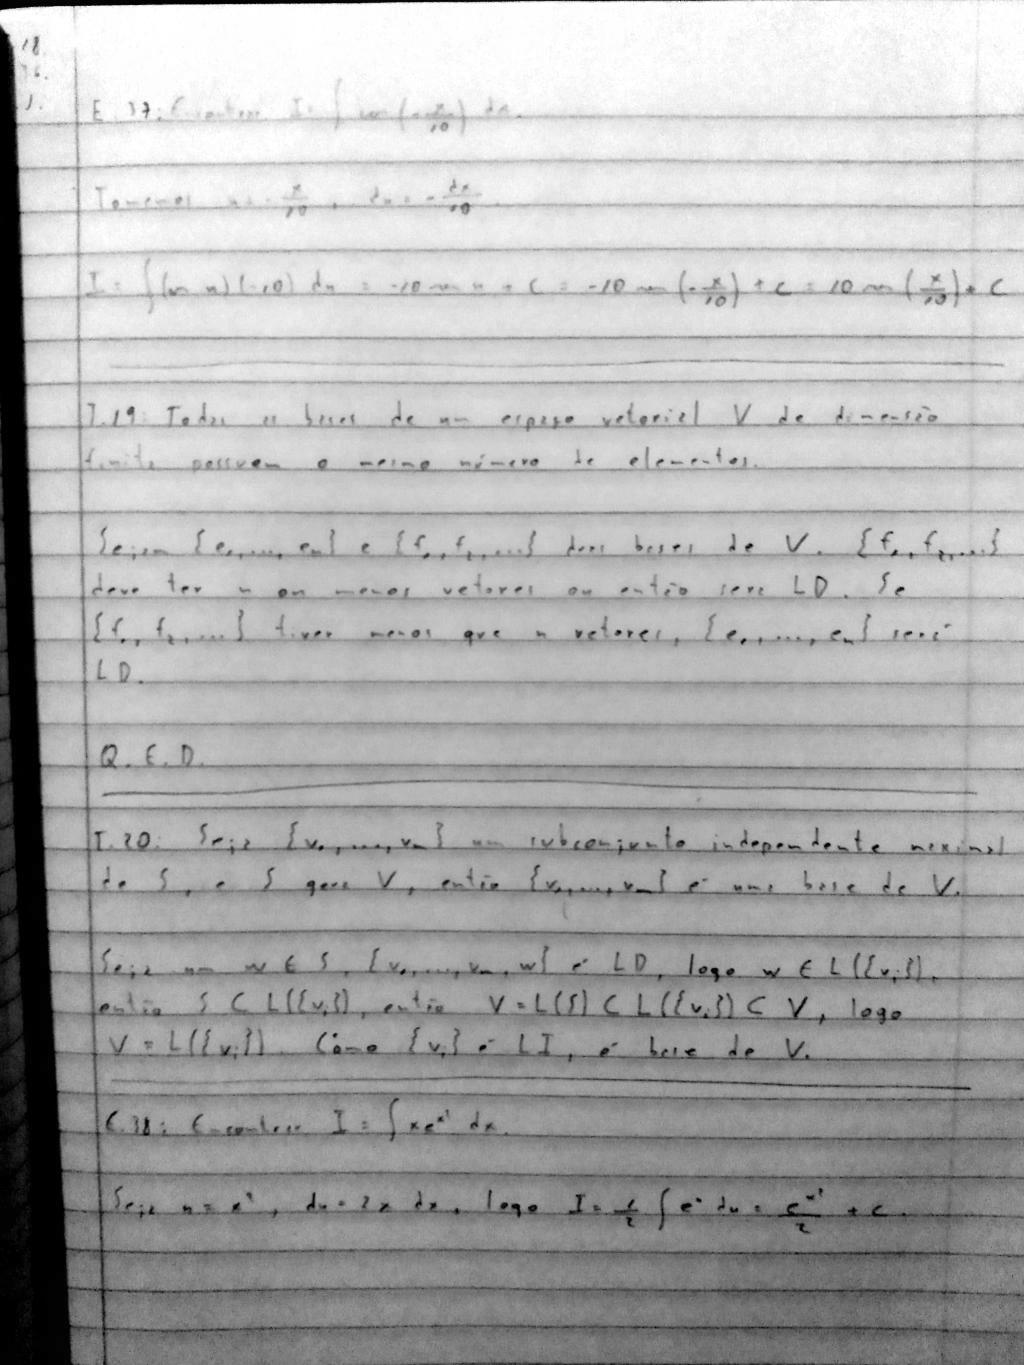 18
E.37: Encontrar I = ∫ cos(-x/10) dx.
Tomemos u = -x/10, du = -dx/10.
I = ∫(cos u)(-10) du = -10 sen u + C = -10 sen(-x/10) + C = 10 sen(x/10) + C
T.19: Todas as bases de um espaço vetorial V de dimensão
finita possuem o mesmo número de elementos.
Sejam {e₁,...,eₙ} e {f₁,f₂,...} duas bases de V. {f₁,f₂,...}
deve ter n ou menos vetores ou então será LD. Se
{f₁,f₂,...} tiver menos que n vetores, {e₁,...,eₙ} será
LD.
Q.E.D.
T.20: Seja {v₁,...,vₘ} um subconjunto independente maximal
de S, e S gera V, então {v₁,...,vₘ} é uma base de V.
Seja um w ∈ S, {v₁,...,vₘ,w} é LD, logo w ∈ L({vᵢ}),
então S ⊂ L({vᵢ}), então V = L(S) ⊂ L({vᵢ}) ⊂ V, logo
V = L({vᵢ}). Como {vᵢ} é LI, é base de V.
E.38: Encontrar I = ∫ xe^x² dx.
Seja u = x², du = 2x dx, logo I = 1/2 ∫ e^u du = e^x²/2 + C.